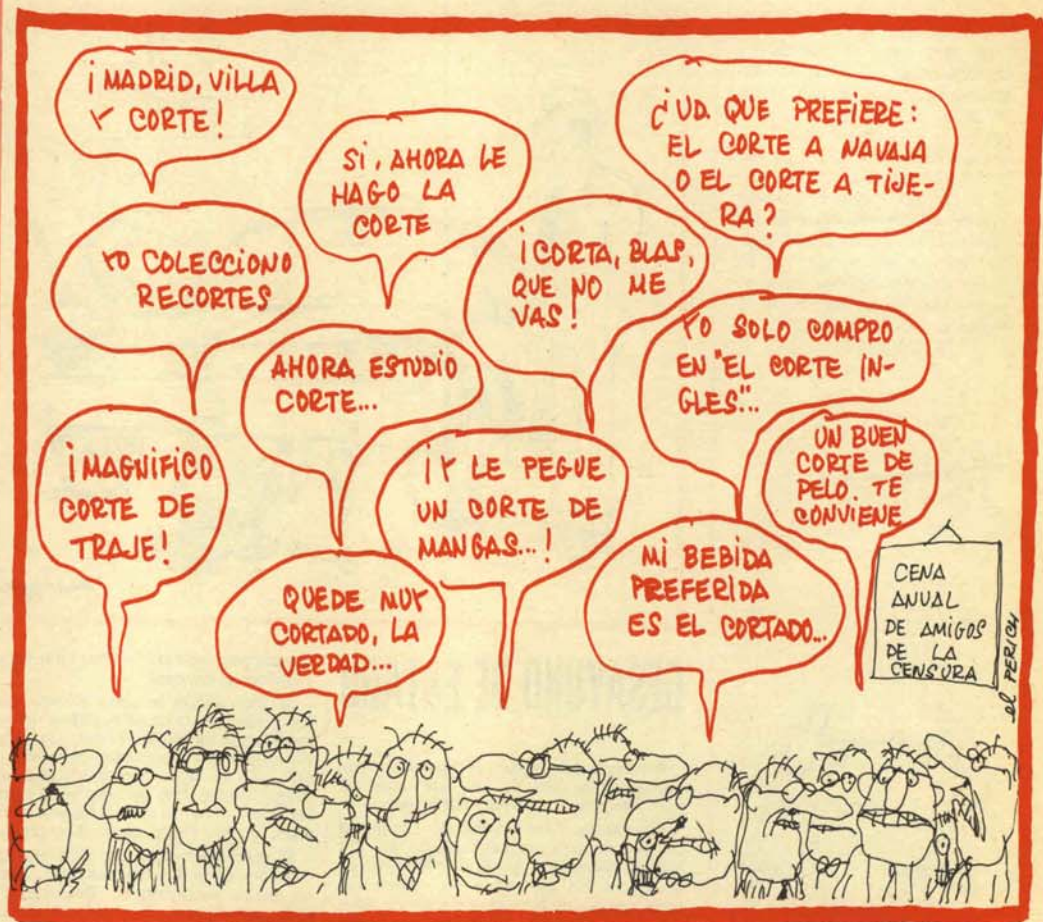 ¡MADRID, VILLA
Y CORTE!
SI, AHORA LE
HAGO LA
CORTE
¿UD. QUE PREFIERE:
EL CORTE A NAVAJA
O EL CORTE A TIJE-
RA?
YO COLECCIONO
RECORTES
¡CORTA, BLAS,
QUE NO ME
VAS!
AHORA ESTUDIO
CORTE...
YO SOLO COMPRO
EN "EL CORTE IN-
GLES"...
¡MAGNIFICO
CORTE DE
TRAJE!
¡Y LE PEGUE
UN CORTE DE
MANGAS...!
UN BUEN
CORTE DE
PELO. TE
CONVIENE
QUEDE MUY
CORTADO, LA
VERDAD...
MI BEBIDA
PREFERIDA
ES EL CORTADO...
CENA
ANUAL
DE AMIGOS
DE LA
CENSURA
el PERICH